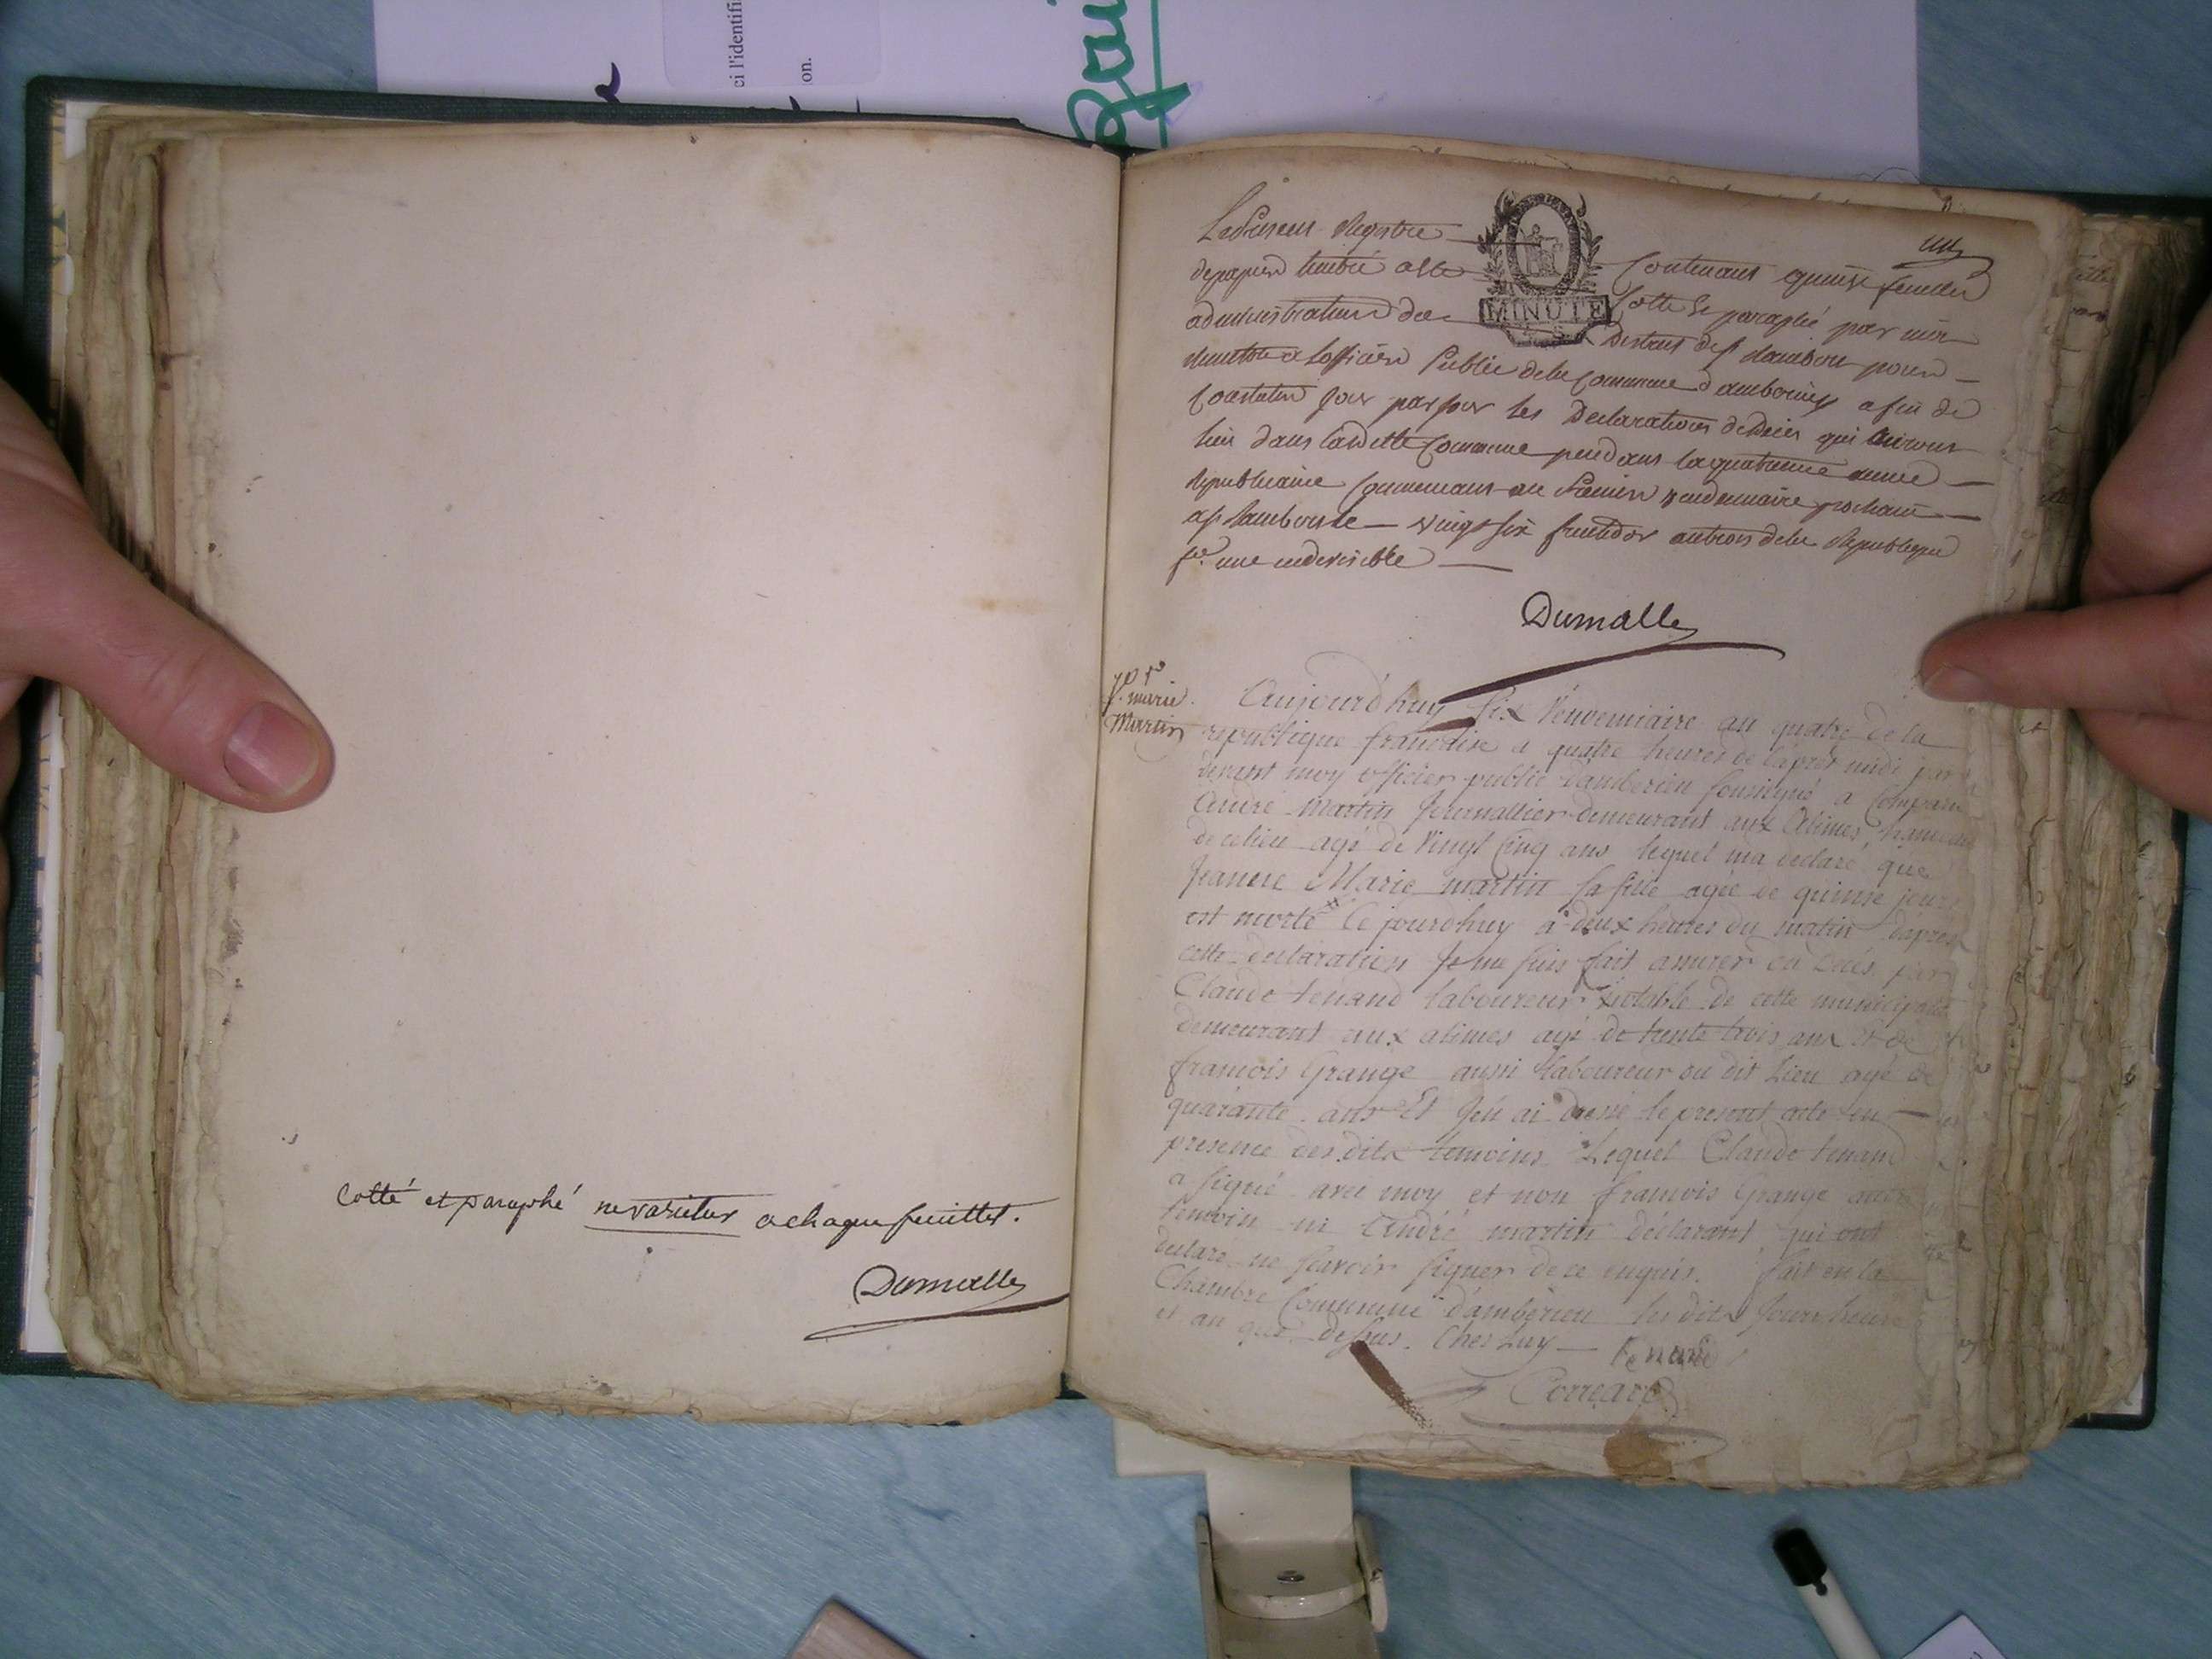 ci l'identifi
on.
Cotté et paraphé ne varietur a chaque feuillet.
Dumalle
un
Le Present Registre
de papier timbré Contenant quinze feuillets
MINUTE
administration du District de St Rambert pour
Remettre a Lofficier Public de la Commune d'ambérieux afin de
Constater jour par jour les Declarations de Deces qui auront
lieu dans Ladite Commune pendant la quatrieme année
Republicaine Commencant au Premier vendemiaire prochain
a St Rambert le vingt six fructidor an trois de la Republique
fse une indivisible
Dumalle
J. marie
Martin
Aujourd'huy Six Venvemiaire an quatre de la
republique francaise a quatre heures de l'après midi par
devant moy officier public d'amberieu soussigné a Comparu
André Martin Journallier demeurant aux Alimes hameau
de ce lieu agé de Vingt Cinq ans lequel m'a declaré que
Jeanne Marie martin sa fille agée de quinse jours
est morte Ce jourdhuy à deux heures du matin d'après
cette declaration Je me suis fait assurer du Décès par
Claude tenand laboureur notable de cette municipalité
demeurant aux alimes agé de trente trois ans et de
francois Grange aussi laboureur du dit Lieu agé de
quarante ans Et J'en ai dressé le present acte en
presence des dits temoins Lequel Claude tenand
a signé avec moy et non francois Grange autre
temoin ni André martin déclarant qui ont
declaré ne scavoir signer de ce enquis. fait en la
Chambre Commune d'amberieu les dits Jour heure
et an que dessus. Chez Luy — tenand
Correard